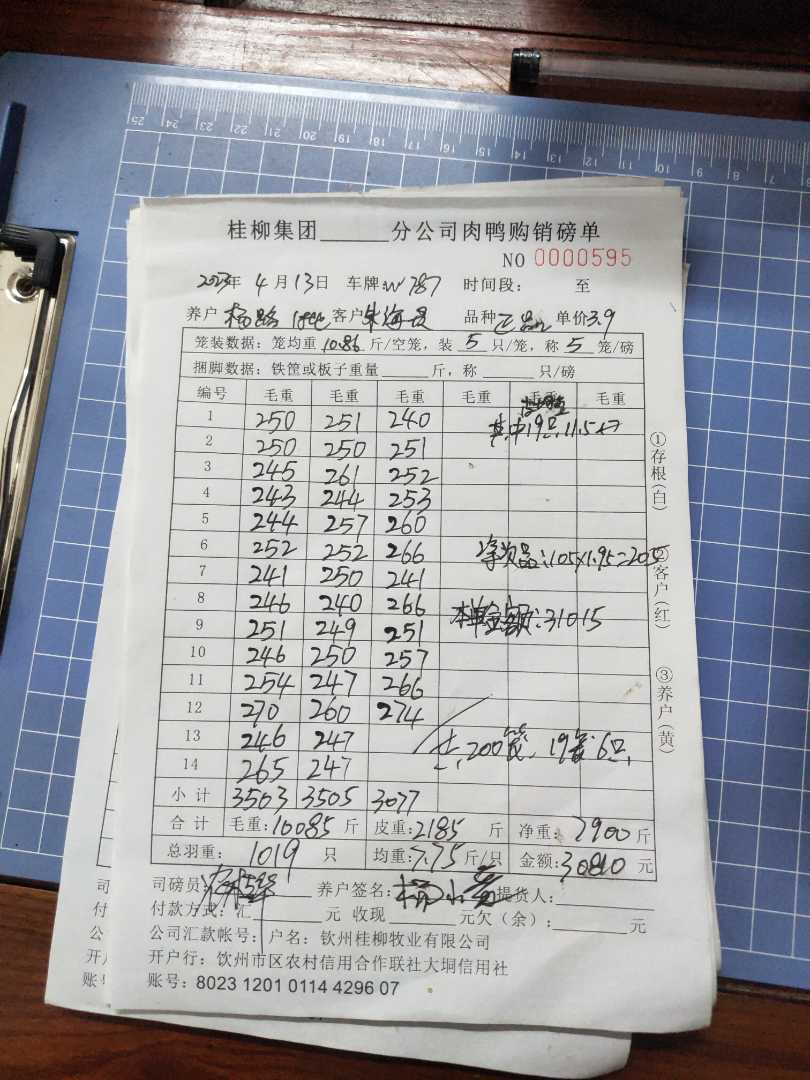 桂柳集团______分公司肉鸭购销磅单
NO 0000595
2023年 4月13日 车牌 W787 时间段: 至
养户 客户 朱海 品种 正品 单价3.9
笼装数据: 笼均重 10.86 斤/空笼, 装 5 只/笼, 称 5 笼/磅
捆脚数据: 铁筐或板子重量______斤, 称______只/磅
编号 毛重 毛重 毛重 毛重 毛重 毛重
1 250 251 240 其中19只.11.5
2 250 250 251
3 245 261 252
4 243 244 253
5 244 257 260
6 252 252 266 次品:105x1.95=205
7 241 250 241
8 246 240 266 本单金额:31015
9 251 249 251
10 246 250 257
11 254 247 266
12 270 260 274
13 246 247 200笼. 19笼6只
14 265 247
小计 3503 3505 3077
合计 毛重:10085斤 皮重:2185 斤 净重: 7900斤
总羽重: 1019 只 均重:7.75斤/只 金额:30810 元
司磅员: 养户签名: 提货人:
付款方式: 汇______元 收现______元欠(余):______元
公司汇款帐号: 户名: 钦州桂柳牧业有限公司
开户行: 钦州市区农村信用合作联社大垌信用社
账号: 8023 1201 0114 4296 07
①存根(白)
②客户(红)
③养户(黄)
司
付
公
开户
账号
25 24 23 22 21 20 19 18 17 16 15 14 13 12 11 10 9 8 7 6